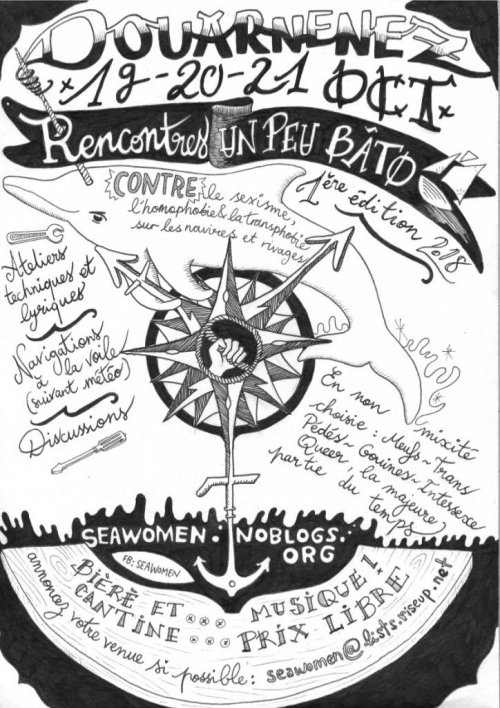 DOUARNENEZ
19-20-21 OCT.
Rencontres UN PEU BÂTO
1ère édition 2018
CONTRE le sexisme,
l'homophobie & la transphobie
sur les navires et rivages
Ateliers
techniques et
lyriques
Navigations
à la voile
(suivant météo)
Discussions
En non mixité
choisie : Meufs ~ Trans
Pédés ~ Gouines ~ Intersexe
Queer, la majeure
partie du temps
SEAWOMEN. NOBLOGS.
ORG
FB: SEAWOMEN
BIÈRE ET ... MUSIQUE !
CANTINE ... PRIX LIBRE
annoncez votre venue si possible : seawomen@lists.riseup.net